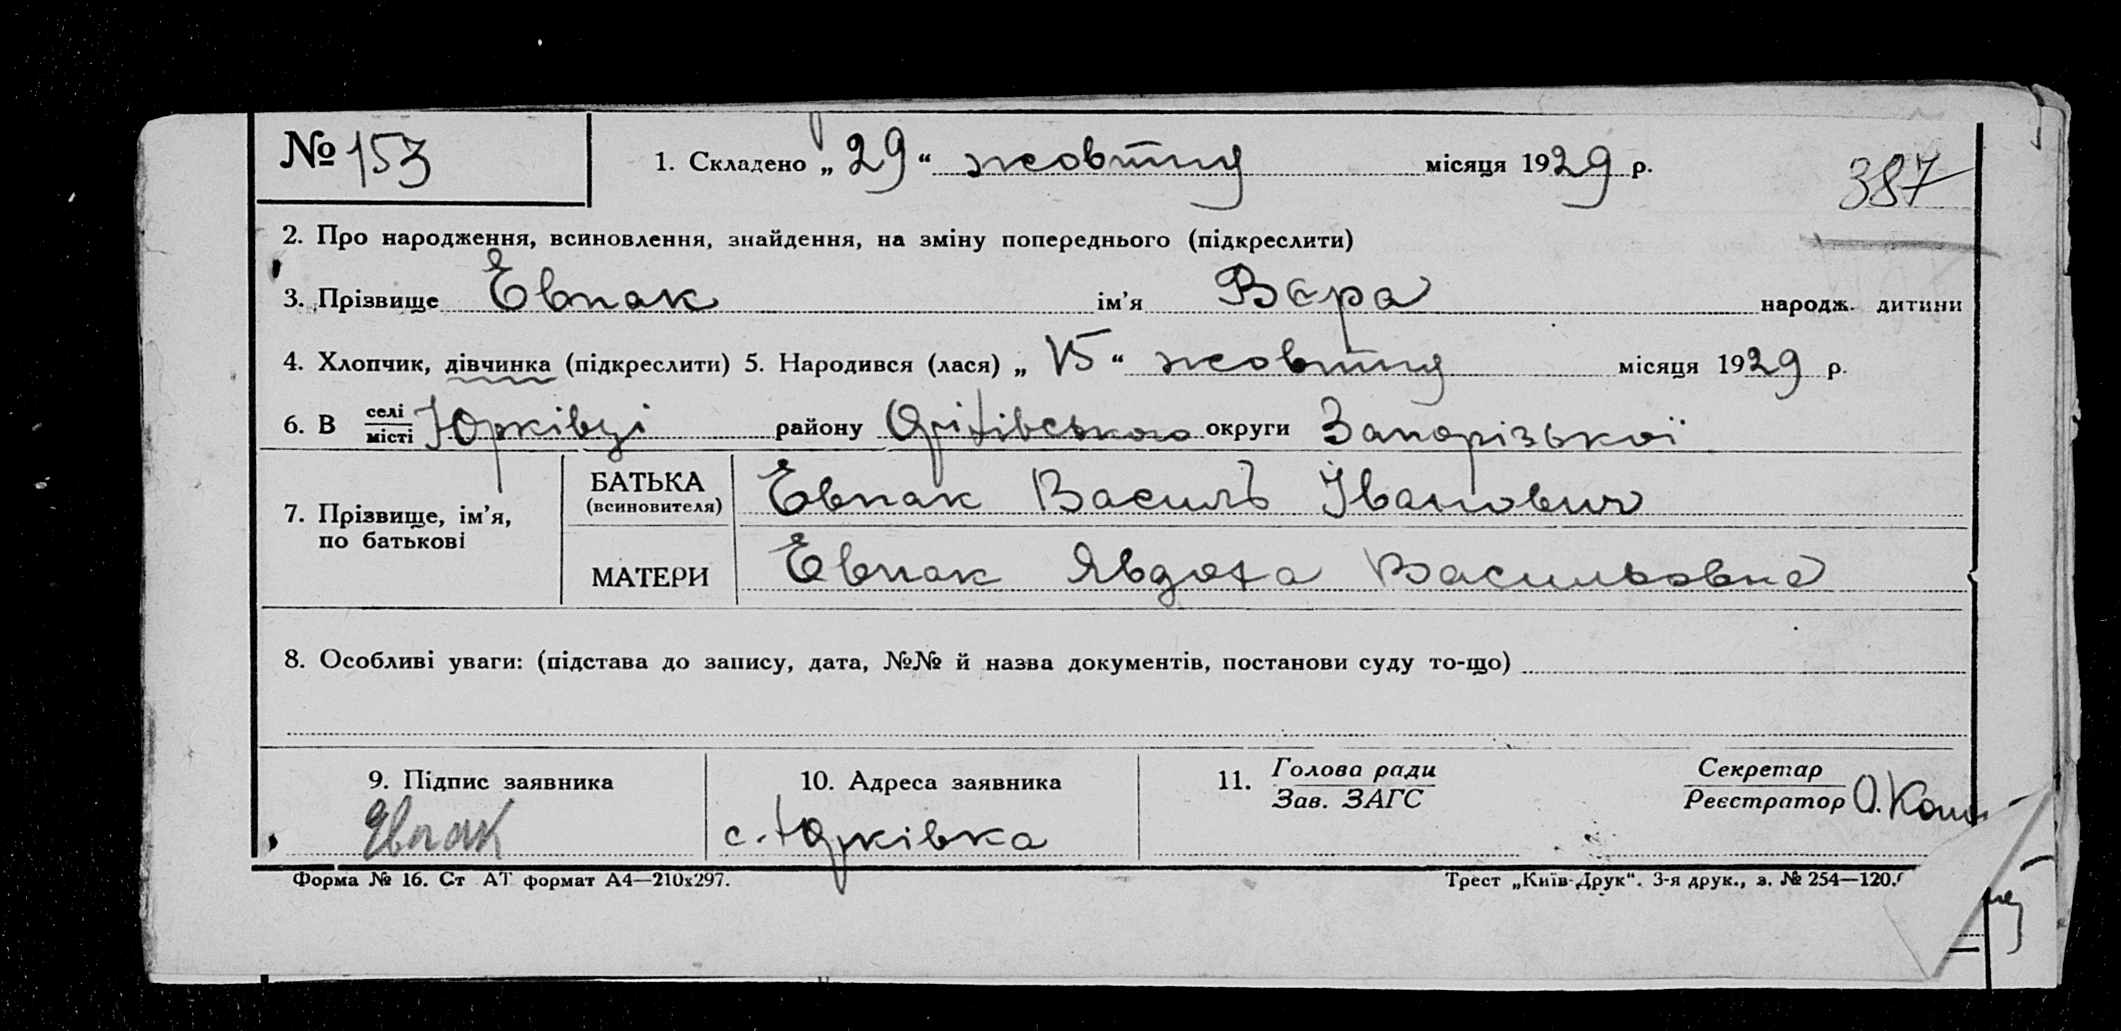 № 153 1. Складено „29“ жовтня місяця 1929 р.
387
2. Про народження, всиновлення, знайдення, на зміну попереднього (підкреслити)
3. Прізвище Евпак ім'я Вєра народж. дитини
4. Хлопчик, дівчинка (підкреслити) 5. Народився (лася) „15“ жовтня місяця 1929 р.
6. В селі/місті Юрківці району Оріхівського округи Запорізької
7. Прізвище, ім'я, по батькові
БАТЬКА (всиновителя) Евпак Василь Іванович
МАТЕРИ Евпак Явдоха Васильовна
8. Особливі уваги: (підстава до запису, дата, №№ й назва документів, постанови суду то-що)
9. Підпис заявника 10. Адреса заявника 11. Голова ради Секретар
Зав. ЗАГС Реєстратор О.
Евпак с. Юрківка
Форма № 16. Ст АТ формат А4—210х297. Трест „Київ-Друк“. 3-я друк., з. № 254—120.